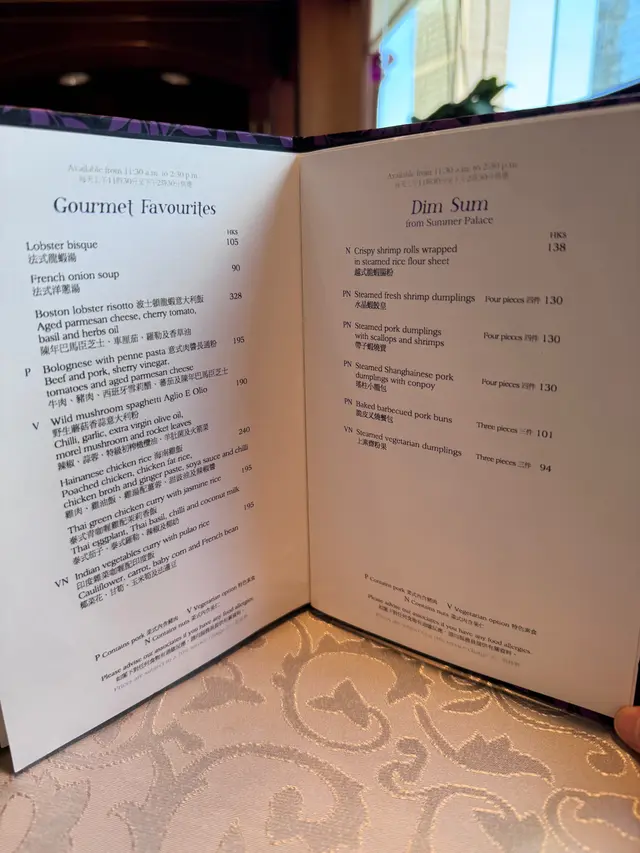 Available from 11:30 a.m. to 2:30 p.m.
Gourmet Favourites
HK$
Lobster bisque 105
法式龍蝦湯
French onion soup 90
法式洋蔥湯
Boston lobster risotto 波士頓龍蝦意大利飯 328
Aged parmesan cheese, cherry tomato,
basil and herbs oil
陳年巴馬臣芝士、車厘茄、羅勒及香草油
P Bolognese with penne pasta 意式肉醬長通粉 195
Beef and pork, sherry vinegar,
tomatoes and aged parmesan cheese
牛肉、豬肉、西班牙雪莉醋、蕃茄及陳年巴馬臣芝士
V Wild mushroom spaghetti Aglio E Olio 190
野生蘑菇香蒜意大利粉
Chilli, garlic, extra virgin olive oil,
morel mushroom and rocket leaves
辣椒、蒜蓉、特級初榨橄欖油、羊肚菌及火箭菜
Hainanese chicken rice 海南雞飯 240
Poached chicken, chicken fat rice,
chicken broth and ginger paste, soya sauce and chilli
雞肉、雞油飯、雞湯配薑蓉、豉油及辣椒醬
Thai green chicken curry with jasmine rice 195
泰式青咖喱雞配茉莉香飯
Thai eggplant, Thai basil, chilli and coconut milk
泰式茄子、泰式羅勒、辣椒及椰奶
VN Indian vegetables curry with pulao rice 195
印度雜菜咖喱配印度飯
Cauliflower, carrot, baby corn and French bean
椰菜花、甘筍、玉米筍及法邊豆
P Contains pork 菜式內含豬肉 V Vegetarian option 特色素食
N Contains nuts 菜式內含果仁
Please advise our associates if you have any food allergies.
Available from 11:30 a.m. to 2:30 p.m.
Dim Sum
from Summer Palace
HK$
N Crispy shrimp rolls wrapped 138
in steamed rice flour sheet
越式脆蝦腸粉
PN Steamed fresh shrimp dumplings Four pieces 四件 130
水晶蝦餃皇
PN Steamed pork dumplings Four pieces 四件 130
with scallops and shrimps
帶子蝦燒賣
PN Steamed Shanghainese pork Four pieces 四件 130
dumplings with conpoy
瑤柱小籠包
PN Baked barbecued pork buns Three pieces 三件 101
脆皮叉燒餐包
VN Steamed vegetarian dumplings Three pieces 三件 94
上素粉果
P Contains pork 菜式內含豬肉 V Vegetarian option 特色素食
N Contains nuts 菜式內含果仁
Please advise our associates if you have any food allergies.